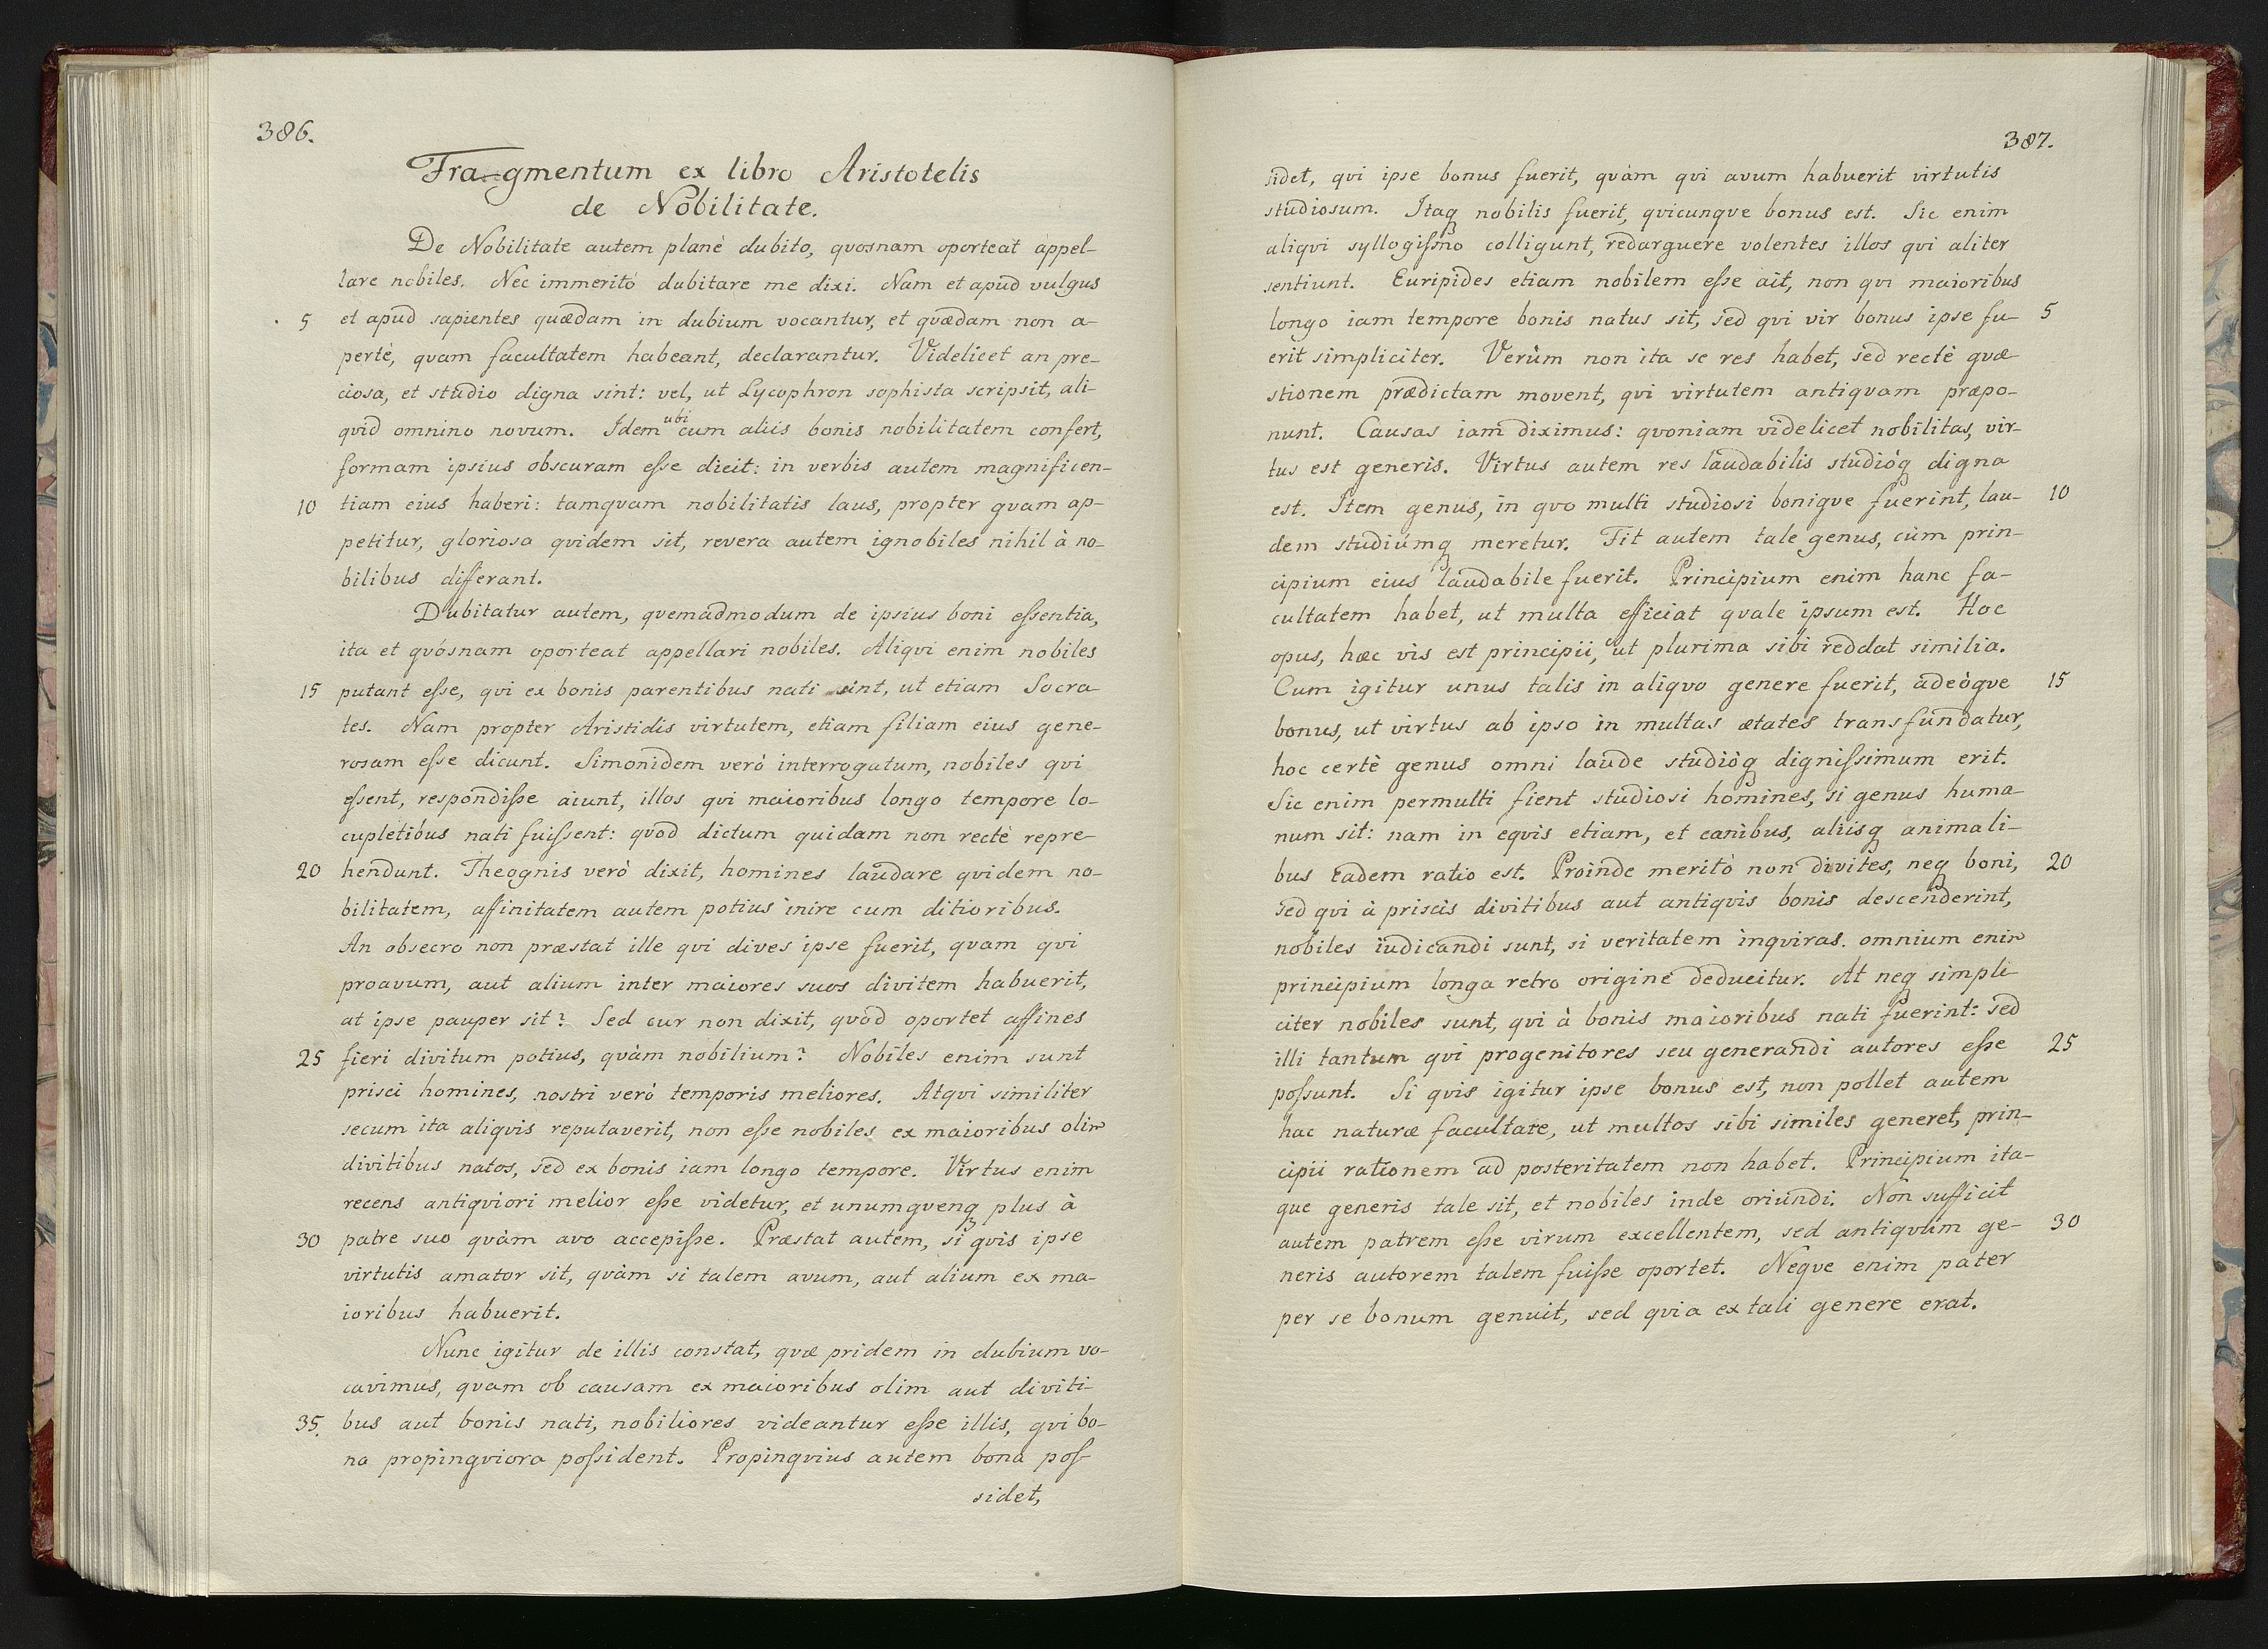 386.
Fragmentum ex libro Aristotelis
de Nobilitate.
De Nobilitate autem planè dubito, qvosnam oporteat appel-
lare nobiles. Nec immeritò dubitare me dixi. Nam et apud vulgus
5 et apud sapientes quædam in dubium vocantur, et qvædam non a-
pertè, qvam facultatem habeant, declarantur. Videlicet an pre-
ciosa, et studio digna sint: vel, ut Lycophron sophista scripsit, ali-
qvid omnino novum. Idem ubi cum aliis bonis nobilitatem confert,
formam ipsius obscuram eſse dicit: in verbis autem magnificen-
10 tiam eius haberi: tamqvam nobilitatis laus, propter qvam ap-
petitur, gloriosa qvidem sit, revera autem ignobiles nihil à no-
bilibus differant.
Dubitatur autem, qvemadmodum de ipsius boni eſsentia,
ita et qvósnam oporteat appellari nobiles. Aliqvi enim nobiles
15 putant eſse, qvi ex bonis parentibus nati sint, ut etiam Socra-
tes. Nam propter Aristidis virtutem, etiam filiam eius gene-
rosam eſse dicunt. Simonidem verò interrogatum, nobiles qvi
eſsent, respondiſse aiunt, illos qvi maioribus longo tempore lo-
cupletibus nati fuiſsent: qvod dictum quidam non rectè repre-
20 hendunt. Theognis verò dixit, homines laudare qvidem no-
bilitatem, affinitatem autem potius inire cum ditioribus.
An obsecro non præstat ille qvi dives ipse fuerit, qvam qvi
proavum, aut alium inter maiores suos divitem habuerit,
at ipse pauper sit? Sed cur non dixit, qvod oportet affines
25 fieri divitum potius, qvàm nobilium? Nobiles enim sunt
prisci homines, nostri verò temporis meliores. Atqvi similiter
secum ita aliqvis reputaverit, non eſse nobiles ex maioribus olim
divitibus natos, sed ex bonis iam longo tempore. Virtus enim
recens antiqviori melior eſse videtur, et unumqvenq plus à
30 patre suo qvàm avo accepiſse. Præstat autem, si qvis ipse
virtutis amator sit, qvàm si talem avum, aut alium ex ma-
ioribus habuerit.
Nunc igitur de illis constat, qvæ pridem in dubium vo-
cavimus, qvam ob causam ex maioribus olim aut diviti-
35. bus aut bonis nati, nobiliores videantur eſse illis, qvi bo-
na propinqviora poſsident. Propinqvius autem bona poſ-
sidet,
387.
sidet, qvi ipse bonus fuerit, qvàm qvi avum habuerit virtutis
studiosum. Itaq nobilis fuerit, qvicunqve bonus est. Sic enim
aliqvi syllogiſmo colligunt, redarguere volentes illos qvi aliter
sentiunt. Euripides etiam nobilem eſse ait, non qvi maioribus
longo iam tempore bonis natus sit, sed qvi vir bonus ipse fu- 5
erit simpliciter. Verùm non ita se res habet, sed rectè qvæ
stionem prædictam movent, qvi virtutem antiqvam præpo-
nunt. Causas iam diximus: qvoniam videlicet nobilitas, vir-
tus est generis. Virtus autem res laudabilis studióq digna
est. Item genus, in qvo multi studiosi boniqve fuerint, lau- 10
dem studiúmq meretur. Fit autem tale genus, cùm prin-
cipium eius laudabile fuerit. Principium enim hanc fa-
cultatem habet, ut multa efficiat qvale ipsum est. Hoc
opus, hæc vis est principii, ut plurima sibi reddat similia.
Cum igitur unus talis in aliqvo genere fuerit, adeòqve 15
bonus, ut virtus ab ipso in multas ætates transfundatur,
hoc certè genus omni laude studióq digniſsimum erit.
Sic enim permulti fient studiosi homines, si genus huma
num sit: nam in eqvis etiam, et canibus, aliisq animali-
bus eadem ratio est. Proinde meritò non divites, neq boni, 20
sed qvi à priscis divitibus aut antiqvis bonis descenderint,
nobiles iudicandi sunt, si veritatem inqviras. omnium enim
principium longa retro origine deducitur. At neq simpli
citer nobiles sunt, qvi à bonis maioribus nati fuerint: sed
illi tantum qvi progenitores seu generandi autores eſse 25
poſsunt. Si qvis igitur ipse bonus est, non pollet autem
hac naturæ facultate, ut multos sibi similes generet, prin-
cipii rationem ad posteritatem non habet. Principium ita-
que generis tale sit, et nobiles inde oriundi. Non sufficit
autem patrem eſse virum excellentem, sed antiqvum ge- 30
neris autorem talem fuiſse oportet. Neqve enim pater
per se bonum genuit, sed qvia ex tali genere erat.